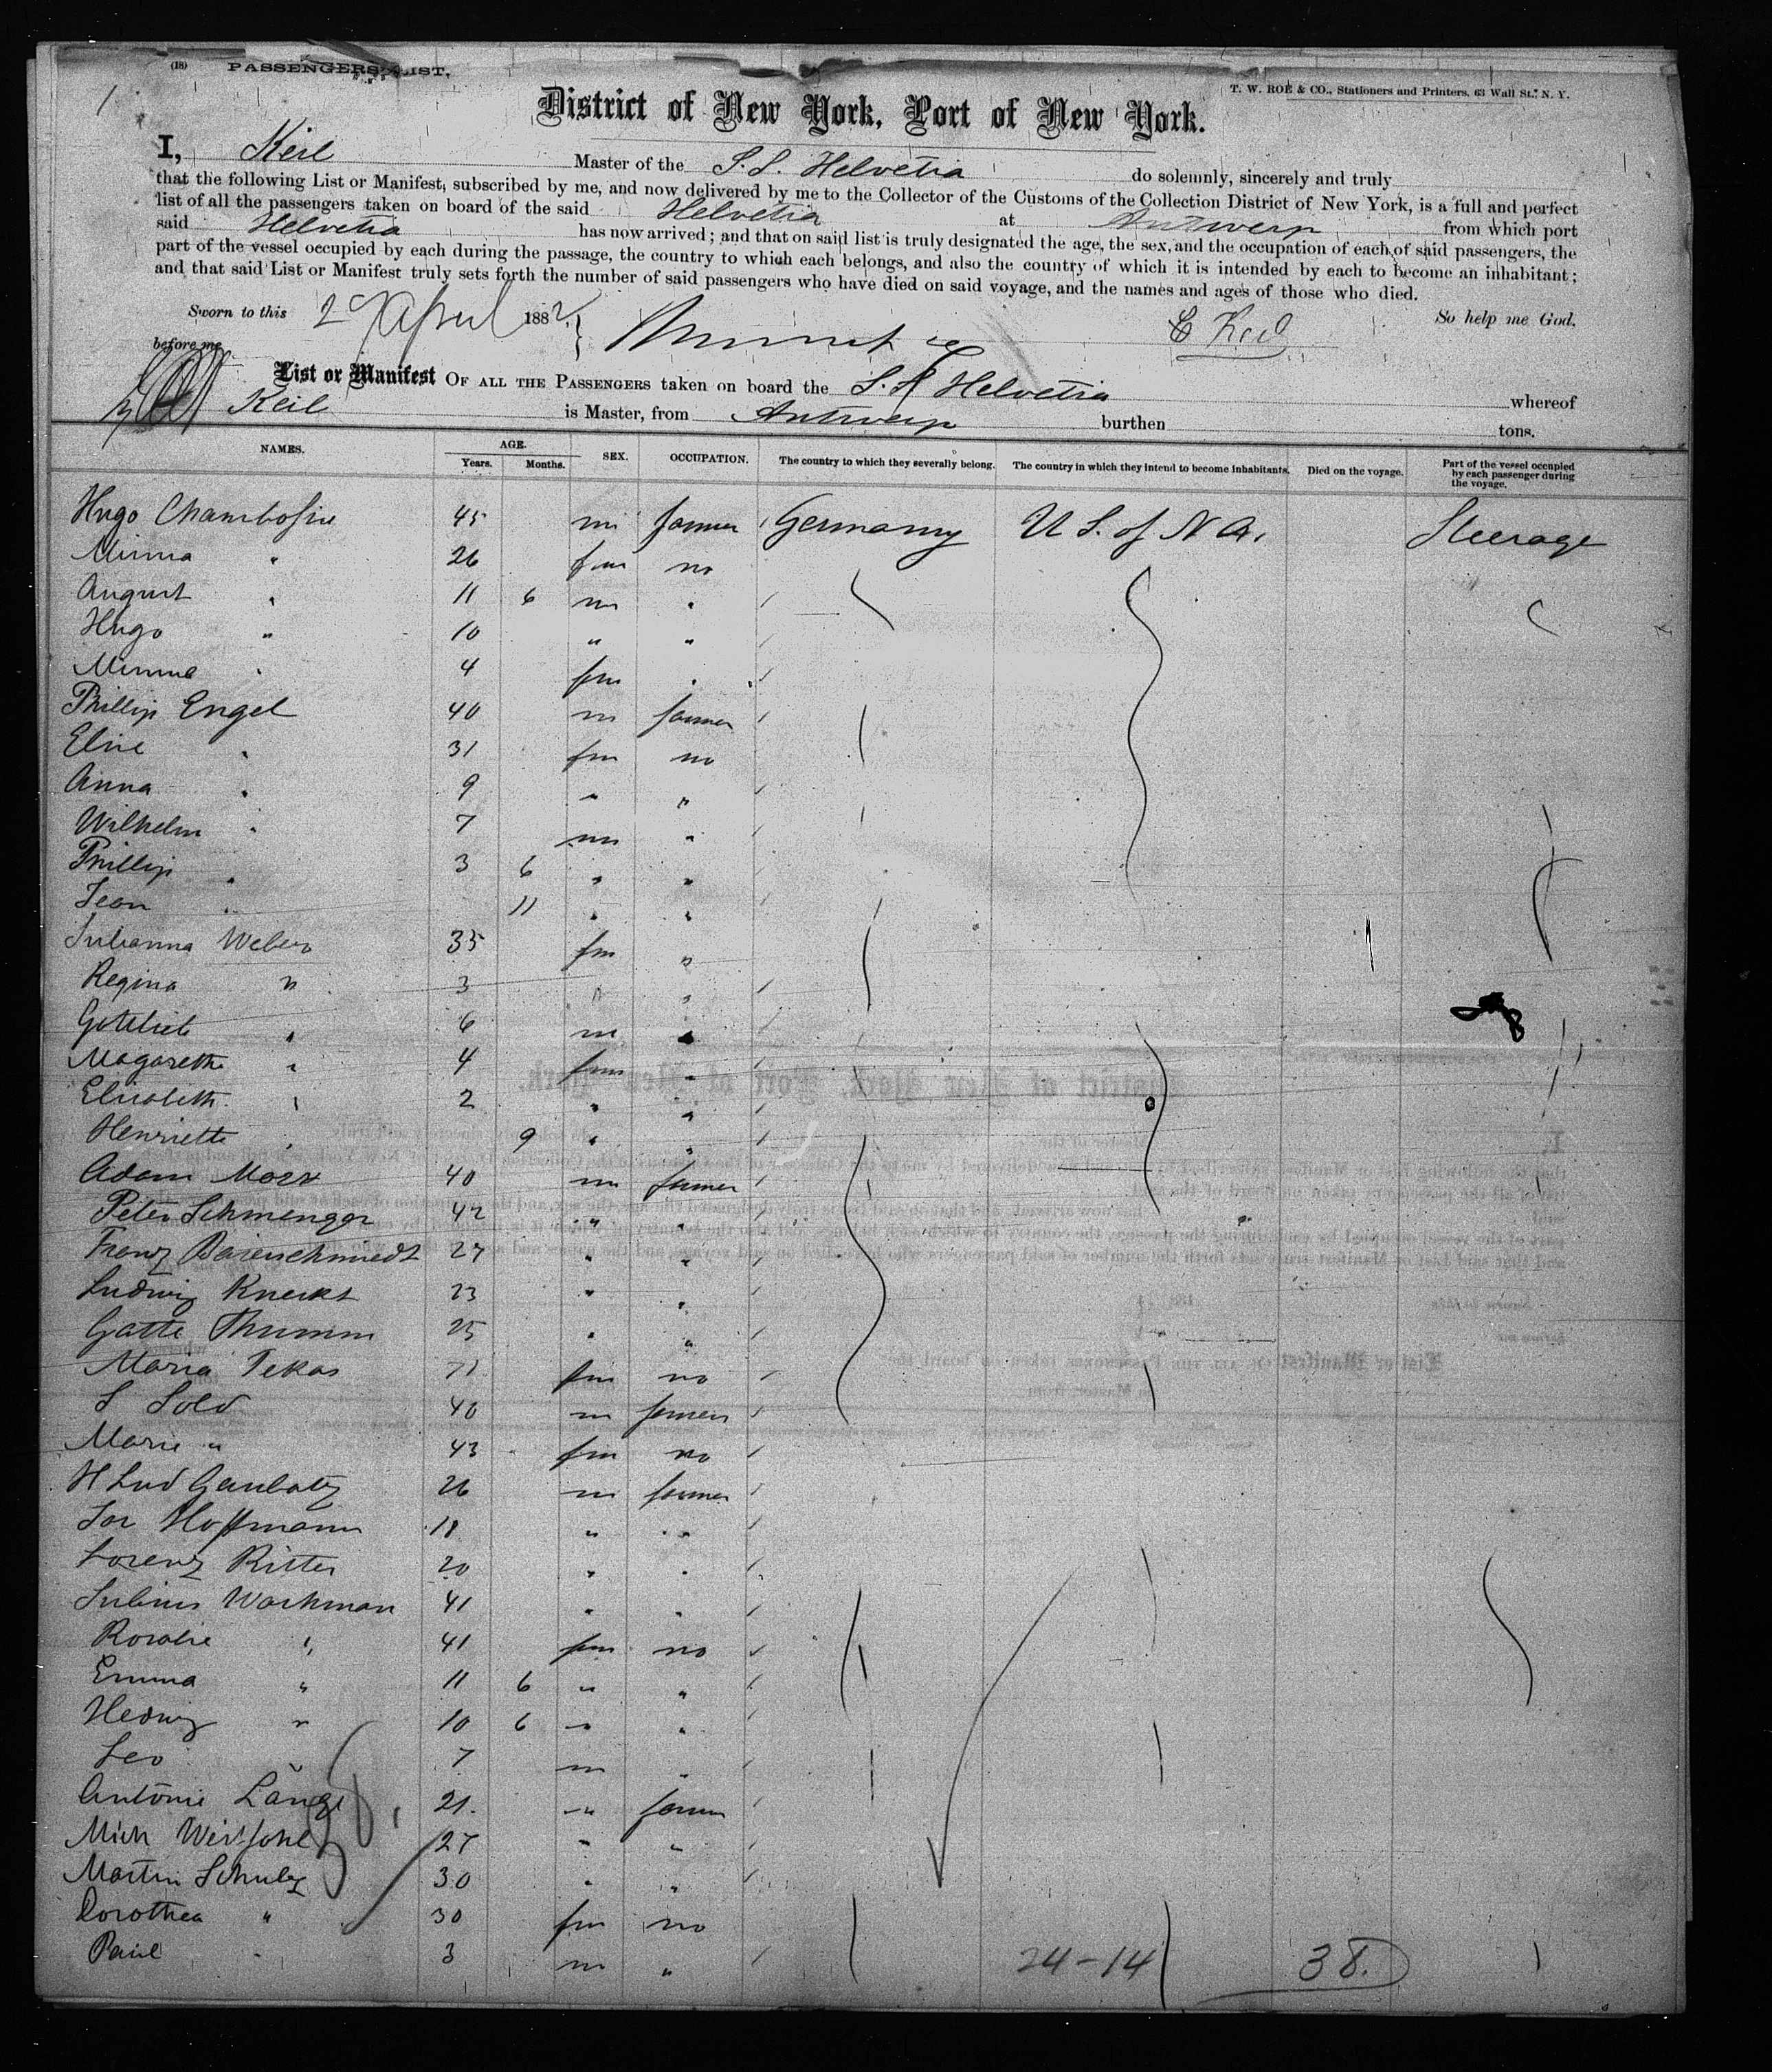 (18) PASSENGERS' LIST.
T. W. ROE & CO., Stationers and Printers, 63 Wall St., N. Y.
1
District of New York, Port of New York.
I, Keil Master of the S.S. Helvetia do solemnly, sincerely and truly
that the following List or Manifest, subscribed by me, and now delivered by me to the Collector of the Customs of the Collection District of New York, is a full and perfect
list of all the passengers taken on board of the said Helvetia at Antwerp from which port
said Helvetia has now arrived; and that on said list is truly designated the age, the sex, and the occupation of each of said passengers, the
part of the vessel occupied by each during the passage, the country to which each belongs, and also the country of which it is intended by each to become an inhabitant;
and that said List or Manifest truly sets forth the number of said passengers who have died on said voyage, and the names and ages of those who died.
Sworn to this April 1882 So help me God.
before me C Keil
List or Manifest OF ALL THE PASSENGERS taken on board the S.S. Helvetia whereof
Keil is Master, from Antwerp burthen tons.
NAMES. AGE. Years. Months. SEX. OCCUPATION. The country to which they severally belong. The country in which they intend to become inhabitants. Died on the voyage. Part of the vessel occupied by each passenger during the voyage.
Hugo 45 m farmer Germany U S. of N A. Steerage
Minna " 26 fm no
August " 11 6 m "
Hugo " 10 " "
Minna " 4 fm "
Phillip Engel 40 m farmer
Elise " 31 fm no
Anna " 9 " "
Wilhelm " 7 m "
Phillip " 3 6 " "
Jean " 11 " "
Julianna Weber 35 fm "
Regina " 3 " "
Gottlieb " 6 m "
Magarethe " 4 fm "
Elisabeth " 2 " "
Henriette " 9 " "
Adam Marx 40 m farmer
Peter Schmenger 42 " "
Franz 27 " "
Ludwig Knecht 23 " "
Gatte Thumm 25 " "
Maria Pekas 71 fm no
S Sold 40 m farmer
Marie " 43 fm no
H Lud Gaubatz 26 m farmer
Hoffmann 18 " "
Lorenz Ritter 20 " "
Julius Workman 41 " "
Rosalie " 41 fm no
Emma " 11 6 " "
Hedwig " 10 6 " "
Leo 7 m "
Antonie Lange 21 " farmer
Mich 27 " "
Martin Schulz 30 " "
Dorothea " 30 fm no
Paul " 3 m "
24-14 38.